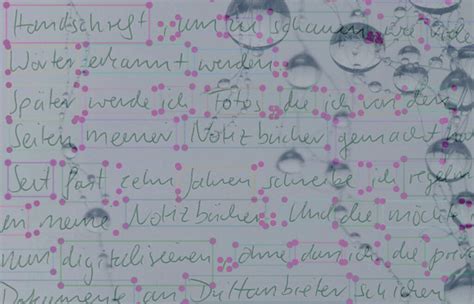 Handschrift, um zu schauen, wie viele
Wörter erkannt werden.
Später werde ich Fotos, die ich von den
Seiten meiner Notizbücher gemacht
Seit fast zehn Jahren schreibe ich regelm
en meine Notizbücher. Und die möchte
nun digitalisieren, ohne dass ich die priva
Dokumente an Drittanbieter schicken